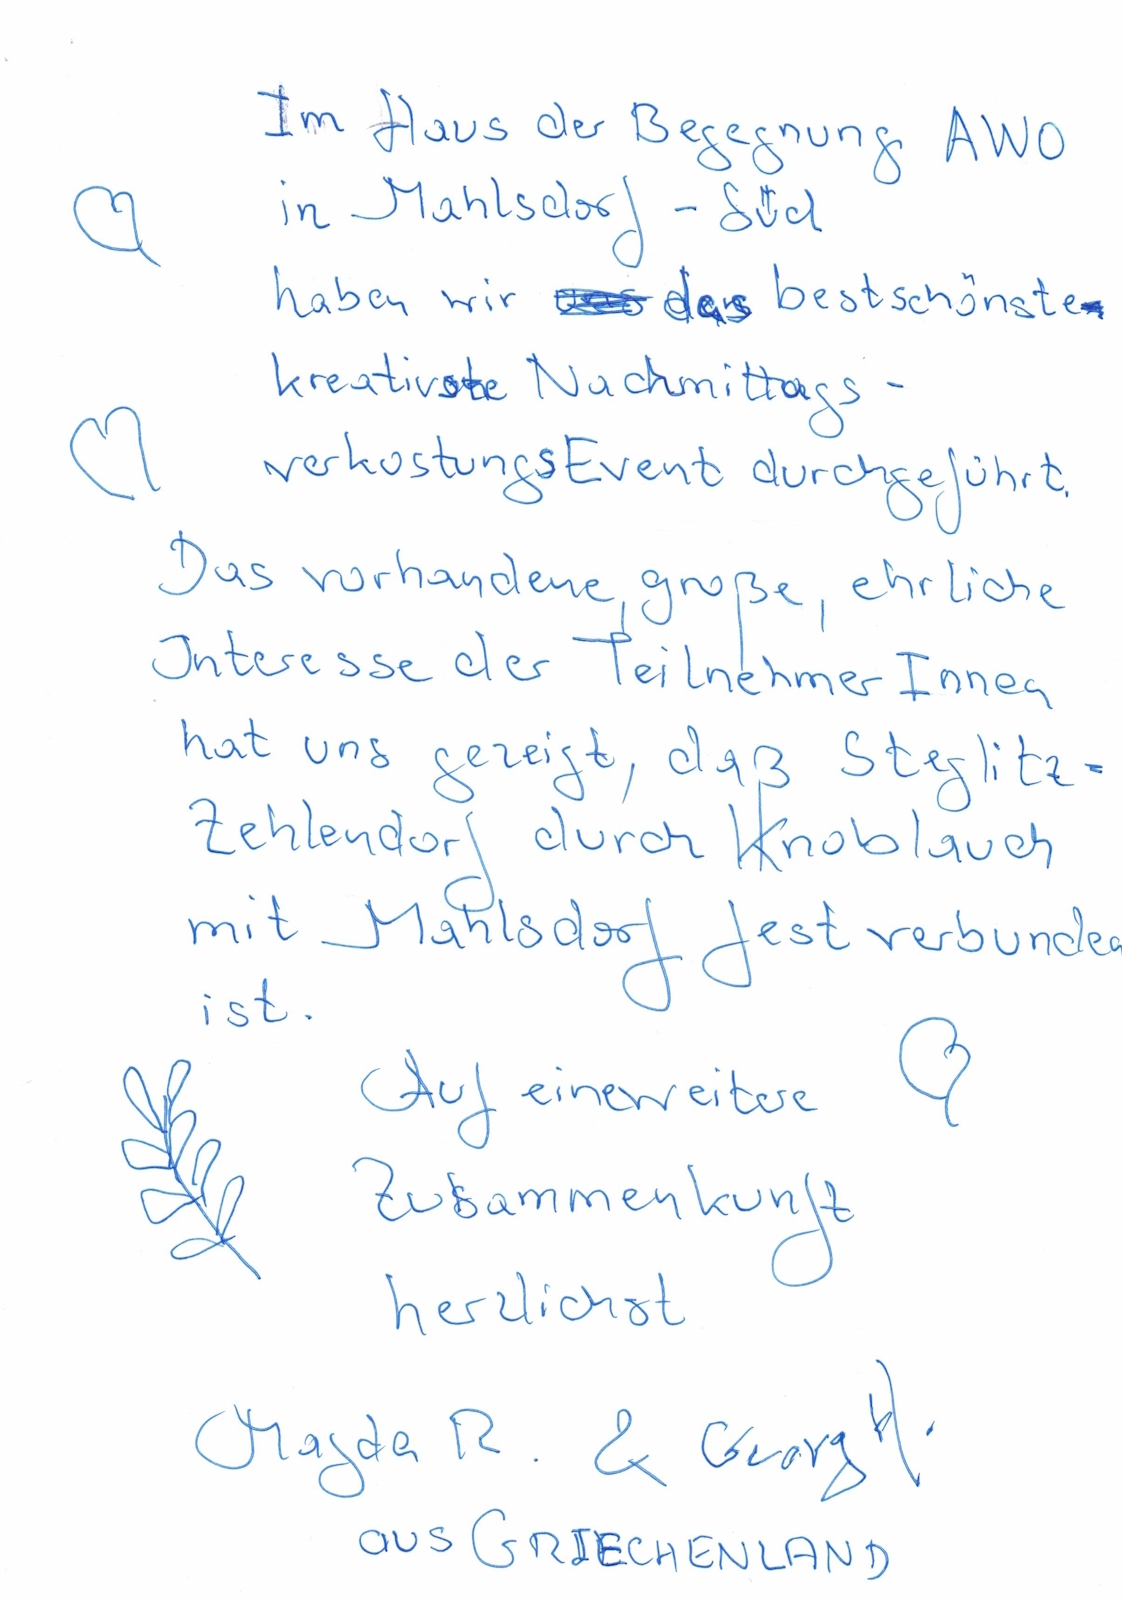 Im Haus der Begegnung AWO
in Mahlsdorf - Süd
haben wir das bestschönste
kreativste Nachmittags -
verkostungsEvent durchgeführt.
Das vorhandene, große, ehrliche
Interesse der TeilnehmerInnen
hat uns gezeigt, daß Steglitz-
Zehlendorf durch Knoblauch
mit Mahlsdorf fest verbunden
ist.
Auf eine weitere
Zusammenkunft
herzlichst
Magda R. & Georg
aus GRIECHENLAND